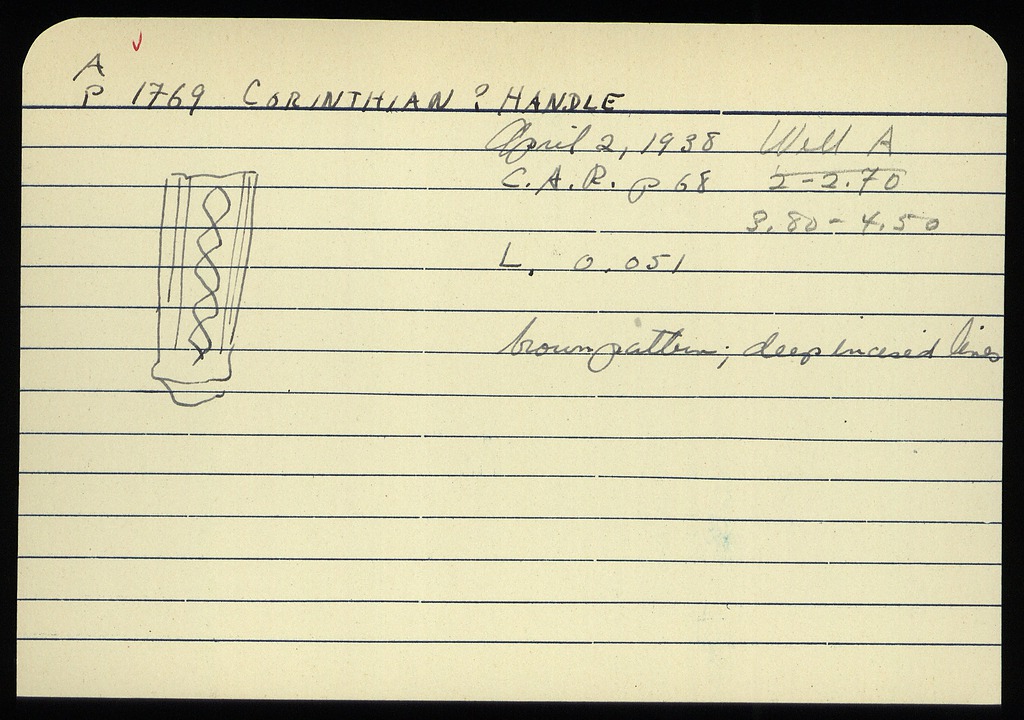 A
P 1769 CORINTHIAN ? HANDLE
April 2, 1938 Well A
C.A.R. p 68 2-2.70
3.80-4.50
L. 0.051
brown pattern; deep incised lines